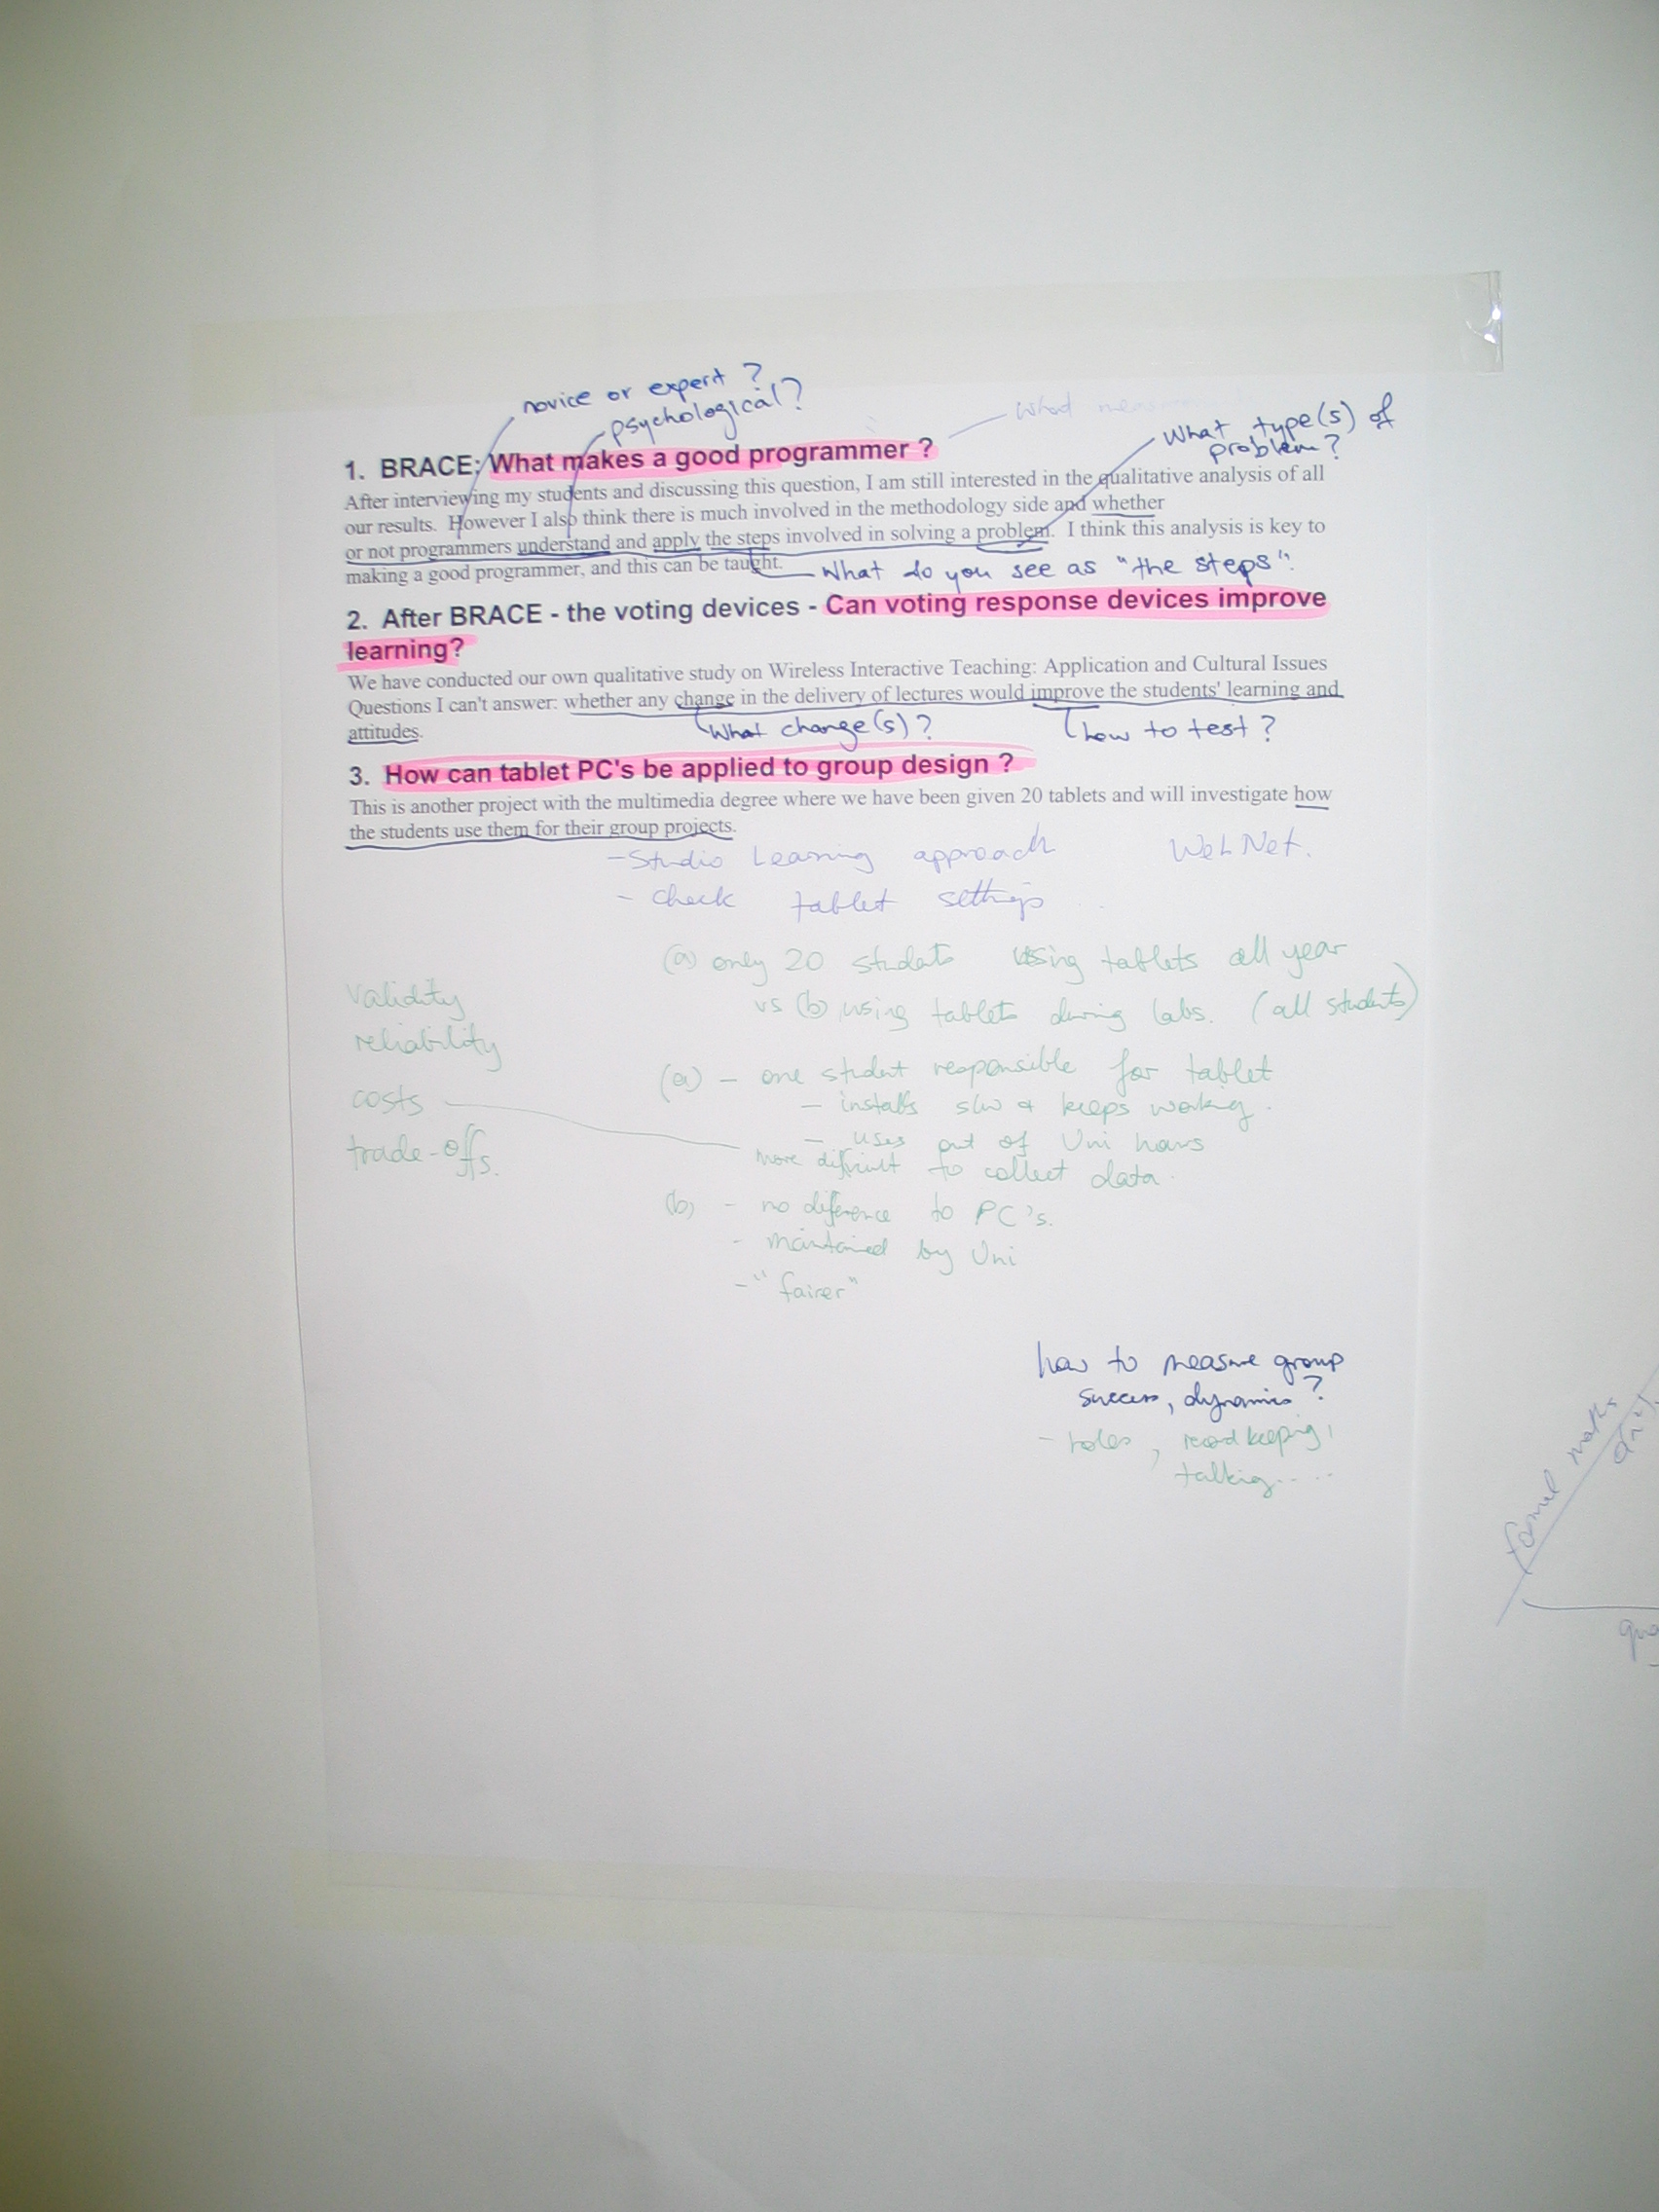 novice or expert ?
psychological?
What
What type(s) of
problem?
1. BRACE: What makes a good programmer ?
After interviewing my students and discussing this question, I am still interested in the qualitative analysis of all
our results. However I also think there is much involved in the methodology side and whether
or not programmers understand and apply the steps involved in solving a problem. I think this analysis is key to
making a good programmer, and this can be taught.
What do you see as "the steps".
2. After BRACE - the voting devices - Can voting response devices improve
learning?
We have conducted our own qualitative study on Wireless Interactive Teaching: Application and Cultural Issues
Questions I can't answer: whether any change in the delivery of lectures would improve the students' learning and
attitudes.
What change(s)?
how to test?
3. How can tablet PC's be applied to group design ?
This is another project with the multimedia degree where we have been given 20 tablets and will investigate how
the students use them for their group projects.
- Studio Learning approach
- check tablet settings
(a) only 20 students using tablets all year
vs (b) using tablets during labs. (all students)
validity
reliability
costs
trade-offs.
(a) - one student responsible for tablet
- installs s/w & keeps working.
- uses out of Uni hours
more difficult to collect data.
(b) - no difference to PC's.
- maintained by Uni
- "fairer"
how to measure group
success, dynamics?
- roles, record keeping,
talking.....
formal maths